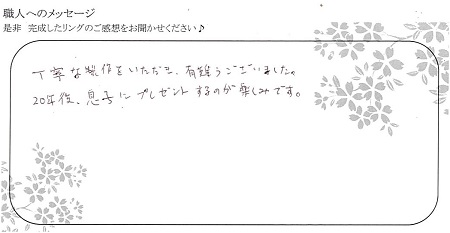 職人へのメッセージ
是非 完成したリングのご感想をお聞かせください♪
丁寧な製作をいただき、有難うございました。
20年後、息子にプレゼントするのが楽しみです。